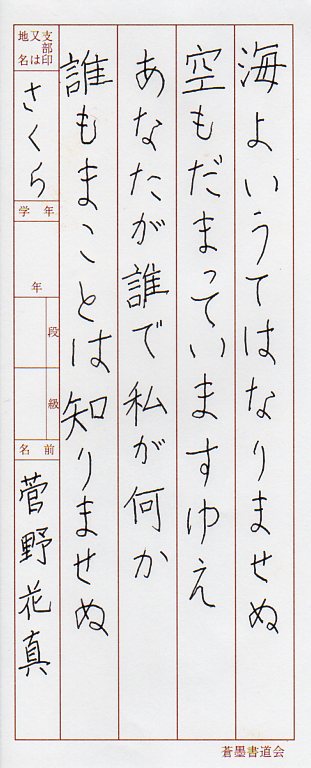 海よいうてはなりませぬ
空もだまっていますゆえ
あなたが誰で私が何か
誰もまことは知りませぬ
支部印
又は
地名
さくら
学年
年
段
級
名前
菅野花真
蒼墨書道会